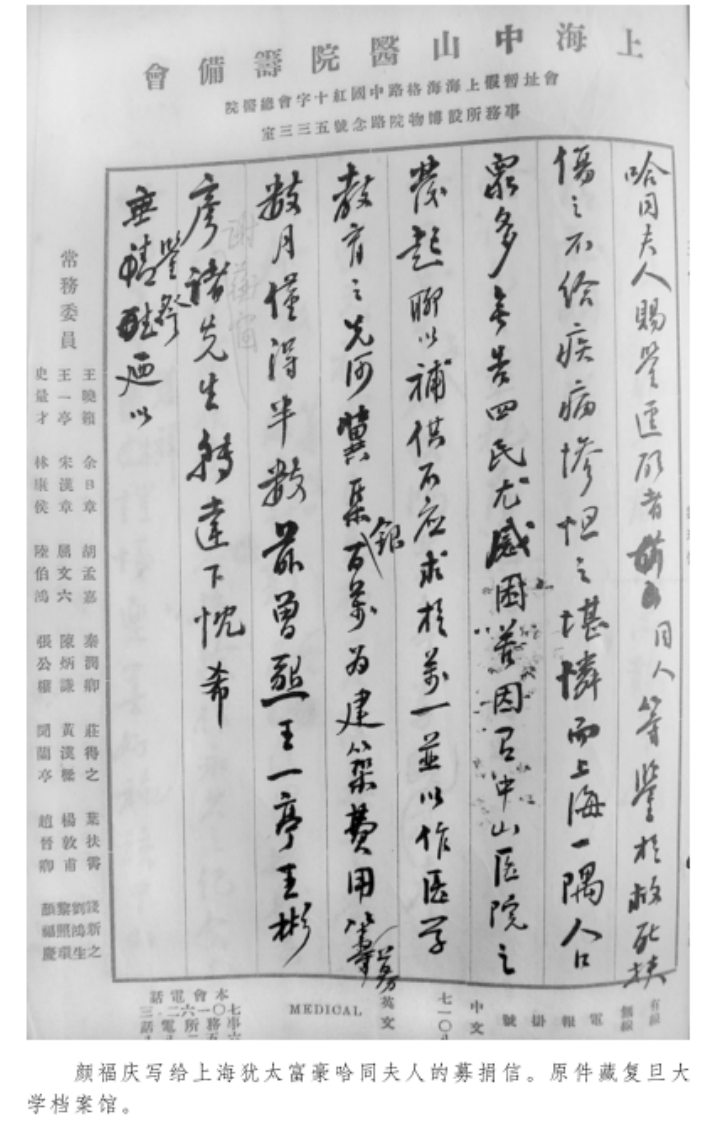 上海中山醫院籌備會
會址暫假上海海格路中國紅十字會總醫院
事務所設博物院路念號五三三室
哈同夫人賜鑒逕啟者 同人等鑒於救死扶
傷之不給疾病慘怛之堪憐而上海一隅人口
眾多無告四民尤感困苦因有中山医院之
發起聊以補供不应求於萬一並以作医学
教育之先河冀集銀百萬为建築費用籌募
数月僅得半数前曾懇王一亭王彬
彦諸先生轉達下忱希
垂鑒 迺以
常務委員
王曉籟 余日章 胡孟嘉 秦潤卿 莊得之 葉扶霄 錢新之
王一亭 宋漢章 屈文六 陳炳謙 黃漢樑 楊敦甫 劉鴻生 黎照寰
史量才 林康侯 陸伯鴻 張公權 聞蘭亭 趙晉卿 顏福慶
有線
無線
電報掛號
中文
七一〇
英文
MEDICAL
本會電話
七〇一六二
事務所電話
颜福庆写给上海犹太富豪哈同夫人的募捐信。原件藏复旦大
学档案馆。